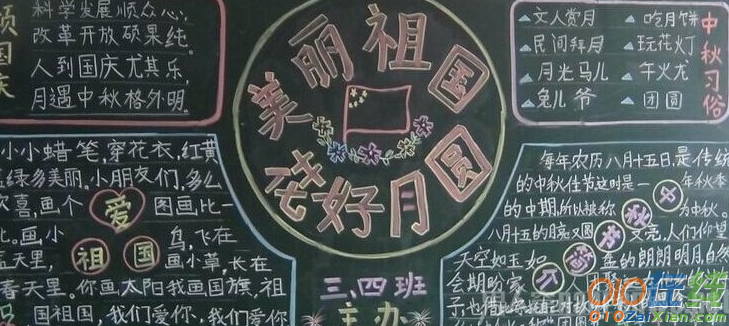 颂国庆
科学发展顺众心,
改革开放硕果纯。
人到国庆尤其乐,
月遇中秋格外明。
美丽祖国
花好月圆
中秋习俗
文人赏月 吃月饼
民间拜月 玩花灯
月光马儿 午火龙
兔儿爷 团圆
小小蜡笔,穿花衣,红黄
绿多美丽。小朋友们,多么
欢喜,画个 图画比一
比。画小 鸟,飞在
蓝天里, 画小草,长在
春天里。你画太阳我画国旗,祖
国祖国,我们爱你,我们爱你
爱
祖国
三、四班
主办
每年农历八月十五日,是传统
的中秋佳节这时是一 年秋季
的中期,所以被称 为中秋。
八月十五的月亮又圆又亮,人们仰望
天空如玉如 的朗朗明月自然
会期盼家人
子
中秋节简介
010在线
010ZaiXian.com